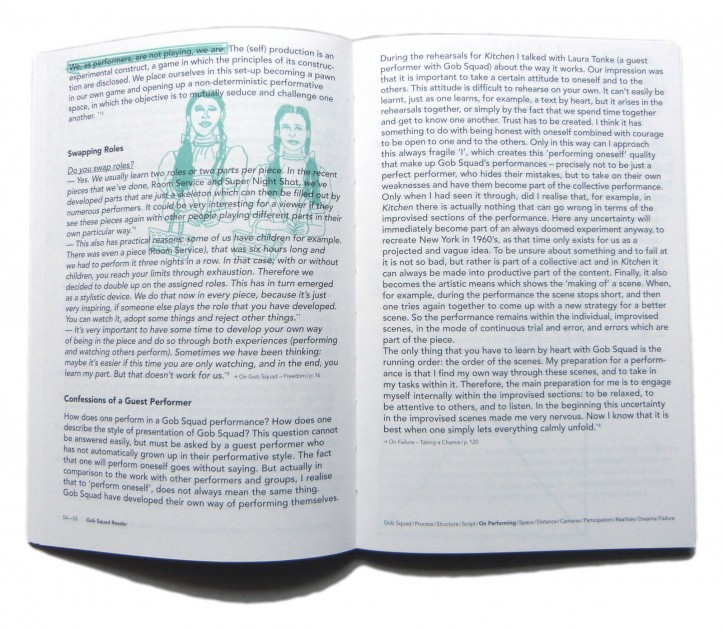 We, as performers, are not playing, we are. The (self) production is an
experimental construct, a game in which the principles of its construc-
tion are disclosed. We place ourselves in this set-up becoming a pawn
in our own game and opening up a non-deterministic performative
space, in which the objective is to mutually seduce and challenge one
another.
Swapping Roles
Do you swap roles?
— Yes. We usually learn two roles or two parts per piece. In the recent
pieces that we've done, Room Service and Super Night Shot, we've
developed parts that are just a skeleton which can then be filled out by
numerous performers. It could be very interesting for a viewer if they
see these pieces again with other people playing different parts in their
own particular way."
— This also has practical reasons: some of us have children for example.
There was even a piece (Room Service), that was six hours long and
we had to perform it three nights in a row. In that case, with or without
children, you reach your limits through exhaustion. Therefore we
decided to double up on the assigned roles. This has in turn emerged
as a stylistic device. We do that now in every piece, because it's just
very inspiring, if someone else plays the role that you have developed.
You can watch it, adopt some things and reject other things."
— It's very important to have some time to develop your own way
of being in the piece and do so through both experiences (performing
and watching others perform). Sometimes we have been thinking:
maybe it's easier if this time you are only watching, and in the end, you
learn my part. But that doesn't work for us." → On Gob Squad – Freedom / p. 16
Confessions of a Guest Performer
How does one perform in a Gob Squad performance? How does one
describe the style of presentation of Gob Squad? This question cannot
be answered easily, but must be asked by a guest performer who
has not automatically grown up in their performative style. The fact
that one will perform oneself goes without saying. But actually in
comparison to the work with other performers and groups, I realise
that to 'perform oneself', does not always mean the same thing.
Gob Squad have developed their own way of performing themselves.
Gob Squad Reader
During the rehearsals for Kitchen I talked with Laura Tonke (a guest
performer with Gob Squad) about the way it works. Our impression was
that it is important to take a certain attitude to oneself and to the
others. This attitude is difficult to rehearse on your own. It can't easily be
learnt, just as one learns, for example, a text by heart, but it arises in the
rehearsals together, or simply by the fact that we spend time together
and get to know one another. Trust has to be created. I think it has
something to do with being honest with oneself combined with courage
to be open to one and to the others. Only in this way can I approach
this always fragile 'I', which creates this 'performing oneself' quality
that make up Gob Squad's performances – precisely not to be just a
perfect performer, who hides their mistakes, but to take on their own
weaknesses and have them become part of the collective performance.
Only when I had seen it through, did I realise that, for example, in
Kitchen there is actually nothing that can go wrong in terms of the
improvised sections of the performance. Here any uncertainty will
immediately become part of an always doomed experiment anyway, to
recreate New York in 1960's, as that time only exists for us as a
projected and vague idea. To be unsure about something and to fail at
it is not so bad, but rather is part of a collective act and in Kitchen it
can always be made into productive part of the content. Finally, it also
becomes the artistic means which shows the 'making of' a scene. When,
for example, during the performance the scene stops short, and then
one tries again together to come up with a new strategy for a better
scene. So the performance remains within the individual, improvised
scenes, in the mode of continuous trial and error, and errors which are
part of the piece.
The only thing that you have to learn by heart with Gob Squad is the
running order: the order of the scenes. My preparation for a perform-
ance is that I find my own way through these scenes, and to take in
my tasks within it. Therefore, the main preparation for me is to engage
myself internally within the improvised sections: to be relaxed, to
be attentive to others, and to listen. In the beginning this uncertainty
in the improvised scenes made me very nervous. Now I know that it is
best when one simply lets everything calmly unfold."
→ On Failure – Taking a Chance / p. 120
Gob Squad / Process / Structure / Script / On Performing / Space / Distance / Cameras / Participation / Realities / Dreams / Failure